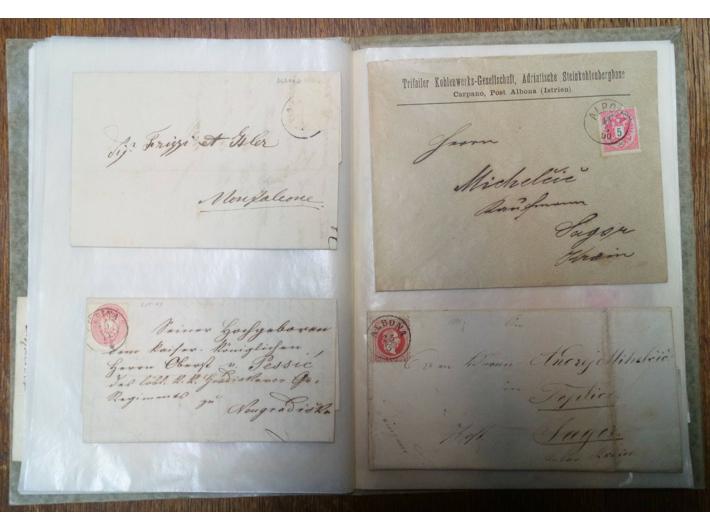 ALBONA
Sigi Frizzi et Isler
Monfalcone
Seiner Hochgeboren
dem kaiser. königlichen
Herrn Oberst v. Pessić,
des löbl. k. k. Gradiskaner Gr.
Regiments zu
Neugradiska
Trifailer Kohlenwerks-Gesellschaft, Adriatische Steinkohlenbergbaue
Carpano, Post Albona (Istrien).
ALBONA
5
Herrn
Michelčič
Kaufmann
Sagor
Krain
ALBONA
Herrn Andrej Mihelčič
in
Töplice
Post Sagor